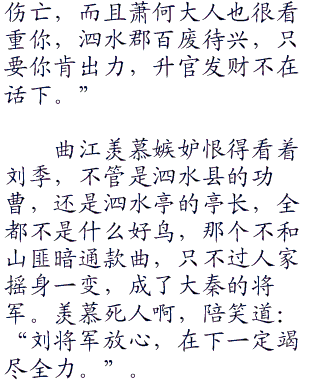 伤亡，而且萧何大人也很看
重你，泗水郡百废待兴，只
要你肯出力，升官发财不在
话下。”
曲江羡慕嫉妒恨得看着
刘季，不管是泗水县的功
曹，还是泗水亭的亭长，全
都不是什么好鸟，那个不和
山匪暗通款曲，只不过人家
摇身一变，成了大秦的将
军。羡慕死人啊，陪笑道：
“刘将军放心，在下一定竭
尽全力。”。